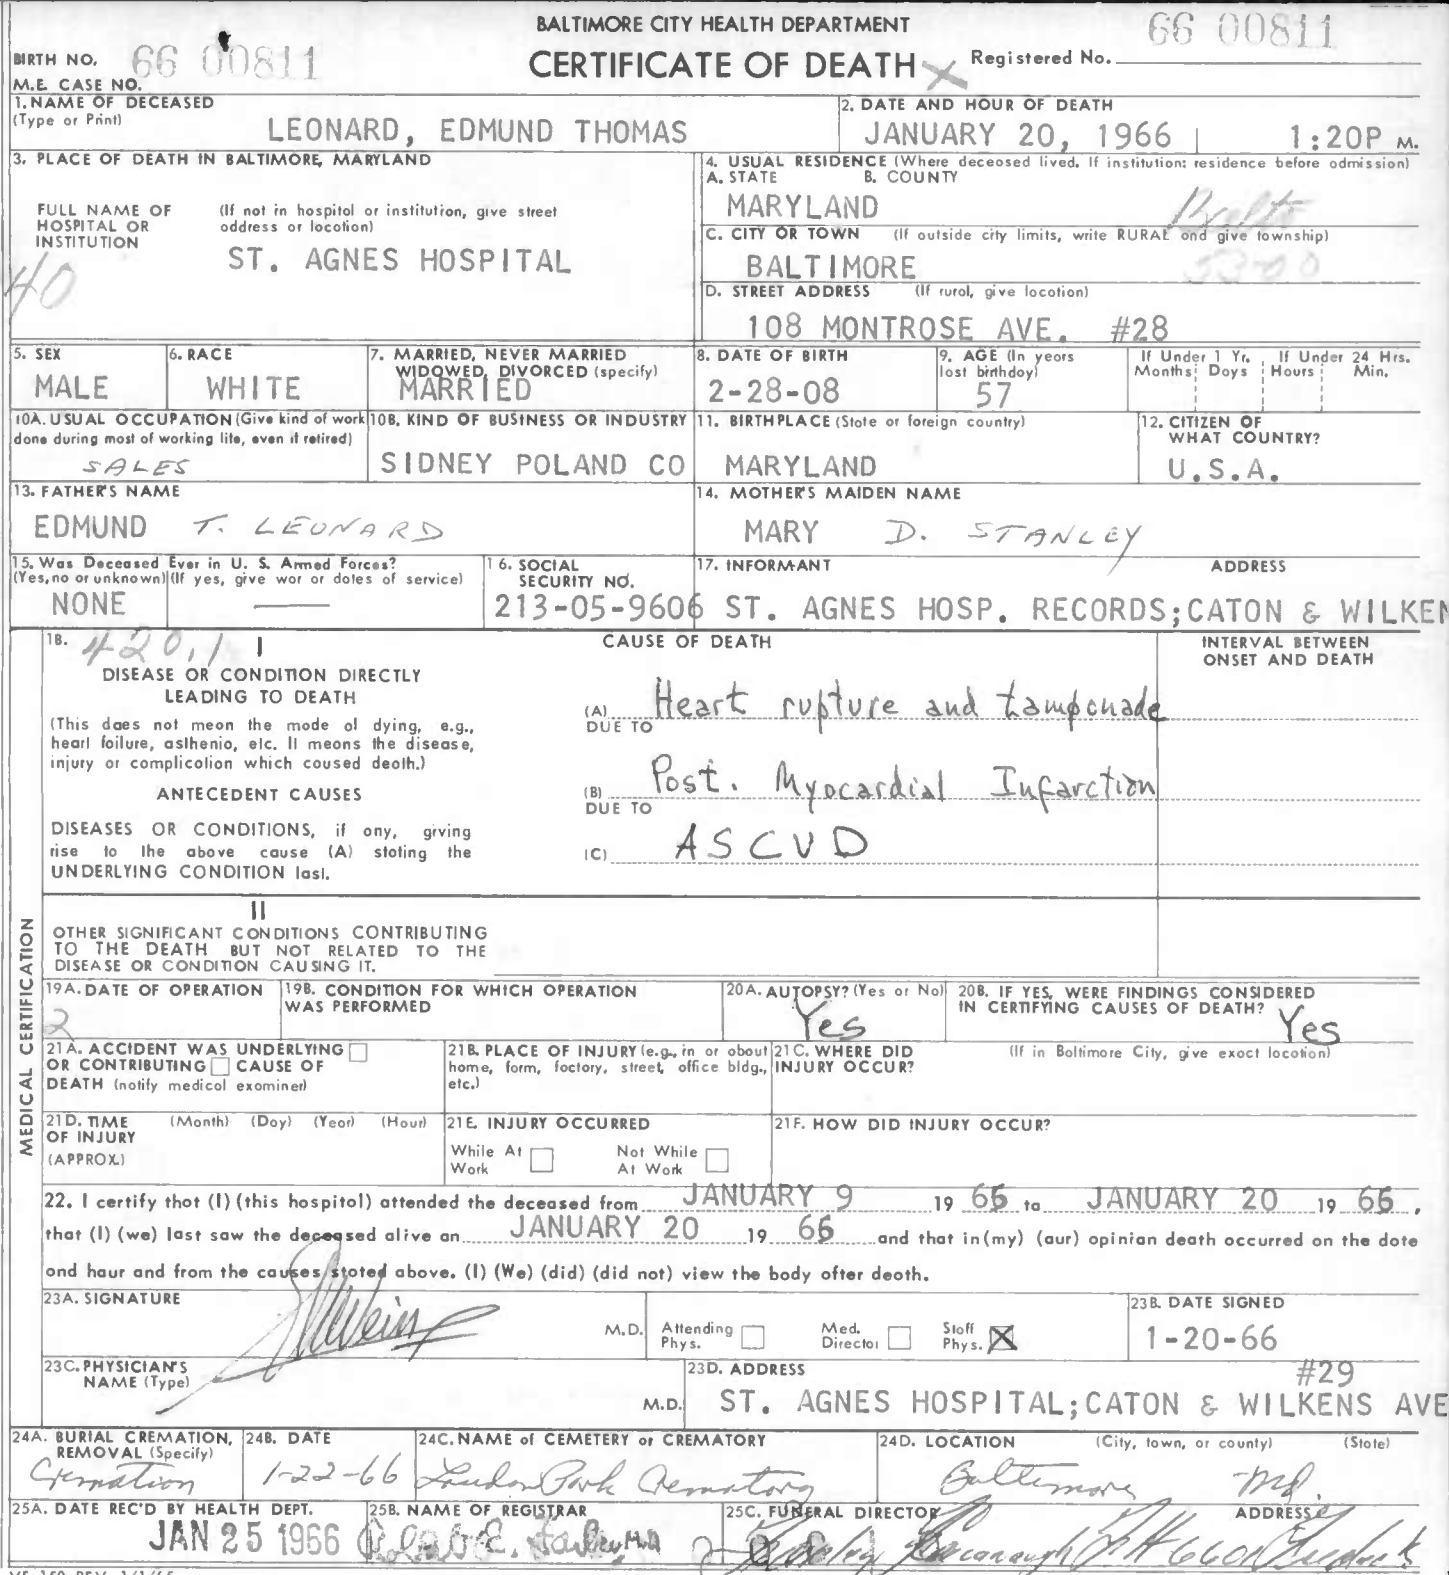 BALTIMORE CITY HEALTH DEPARTMENT
CERTIFICATE OF DEATH
BIRTH NO. 66 00811
Registered No. 66 00811
M.E. CASE NO.
1. NAME OF DECEASED
(Type or Print)
LEONARD, EDMUND THOMAS
2. DATE AND HOUR OF DEATH
JANUARY 20, 1966 1:20P M.
3. PLACE OF DEATH IN BALTIMORE, MARYLAND
FULL NAME OF HOSPITAL OR INSTITUTION
(If not in hospital or institution, give street address or location)
ST. AGNES HOSPITAL
40
4. USUAL RESIDENCE (Where deceased lived. If institution: residence before admission)
A. STATE B. COUNTY
MARYLAND Balto
C. CITY OR TOWN (If outside city limits, write RURAL and give township)
BALTIMORE 53-00
D. STREET ADDRESS (If rural, give location)
108 MONTROSE AVE. #28
5. SEX
MALE
6. RACE
WHITE
7. MARRIED, NEVER MARRIED
WIDOWED, DIVORCED (specify)
MARRIED
8. DATE OF BIRTH
2-28-08
9. AGE (In years last birthday)
57
If Under 1 Yr. Months Days
If Under 24 Hrs. Hours Min.
10A. USUAL OCCUPATION (Give kind of work done during most of working life, even if retired)
SALES
10B. KIND OF BUSINESS OR INDUSTRY
SIDNEY POLAND CO
11. BIRTHPLACE (State or foreign country)
MARYLAND
12. CITIZEN OF WHAT COUNTRY?
U.S.A.
13. FATHER'S NAME
EDMUND T. LEONARD
14. MOTHER'S MAIDEN NAME
MARY D. STANLEY
15. Was Deceased Ever in U. S. Armed Forces?
(Yes, no or unknown) (If yes, give war or dates of service)
NONE
16. SOCIAL SECURITY NO.
213-05-9606
17. INFORMANT ADDRESS
ST. AGNES HOSP. RECORDS;CATON & WILKEN
MEDICAL CERTIFICATION
18. 420.1
I
DISEASE OR CONDITION DIRECTLY LEADING TO DEATH
(This does not mean the mode of dying, e.g., heart failure, asthenia, etc. It means the disease, injury or complication which caused death.)
ANTECEDENT CAUSES
DISEASES OR CONDITIONS, if any, giving rise to the above cause (A) stating the UNDERLYING CONDITION last.
CAUSE OF DEATH
INTERVAL BETWEEN ONSET AND DEATH
(A) Heart rupture and tamponade
DUE TO
(B) Post. Myocardial Infarction
DUE TO
(C) ASCVD
II
OTHER SIGNIFICANT CONDITIONS CONTRIBUTING TO THE DEATH BUT NOT RELATED TO THE DISEASE OR CONDITION CAUSING IT.
19A. DATE OF OPERATION
2
19B. CONDITION FOR WHICH OPERATION WAS PERFORMED
20A. AUTOPSY? (Yes or No)
Yes
20B. IF YES, WERE FINDINGS CONSIDERED IN CERTIFYING CAUSES OF DEATH?
Yes
21A. ACCIDENT WAS UNDERLYING OR CONTRIBUTING CAUSE OF DEATH (notify medical examiner)
21B. PLACE OF INJURY (e.g., in or about home, farm, factory, street, office bldg., etc.)
21C. WHERE DID INJURY OCCUR?
(If in Baltimore City, give exact location)
21D. TIME OF INJURY (APPROX.)
(Month) (Day) (Year) (Hour)
21E. INJURY OCCURRED
While At Work Not While At Work
21F. HOW DID INJURY OCCUR?
22. I certify that (I) (this hospital) attended the deceased from JANUARY 9 19 66 to JANUARY 20 19 66,
that (I) (we) last saw the deceased alive on JANUARY 20 19 66 and that in (my) (our) opinion death occurred on the date
and hour and from the causes stated above. (I) (We) (did) (did not) view the body after death.
23A. SIGNATURE
M.D. Attending Phys. Med. Director Staff Phys. X
23B. DATE SIGNED
1-20-66
23C. PHYSICIAN'S NAME (Type)
M.D.
23D. ADDRESS #29
ST. AGNES HOSPITAL;CATON & WILKENS AVE
24A. BURIAL CREMATION, REMOVAL (Specify)
Cremation
24B. DATE
1-22-66
24C. NAME of CEMETERY or CREMATORY
Loudon Park Crematory
24D. LOCATION (City, town, or county) (State)
Baltimore Md.
25A. DATE REC'D BY HEALTH DEPT.
JAN 25 1966
25B. NAME OF REGISTRAR
Robert E. Farley M.D.
25C. FUNERAL DIRECTOR ADDRESS